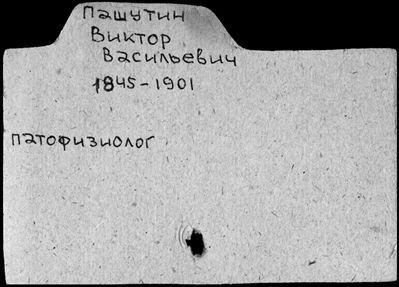 Пашутин
Виктор
Васильевич
1845-1901
патофизиолог